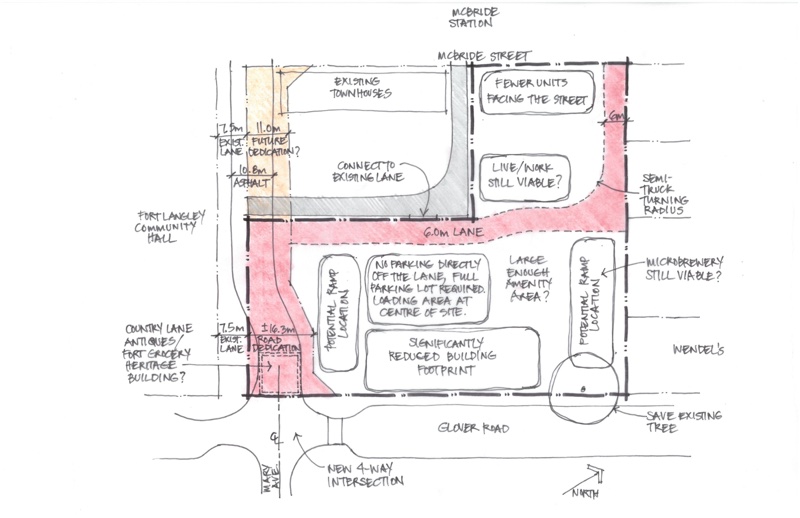 MCBRIDE
STATION
MCBRIDE STREET
EXISTING
TOWNHOUSES
FEWER UNITS
FACING THE STREET
6m
7.5m
EXIST.
LANE
11.0m
FUTURE
DEDICATION?
10.8m
ASPHALT
CONNECT TO
EXISTING LANE
LIVE/WORK
STILL VIABLE?
SEMI-
TRUCK
TURNING
RADIUS
FORT LANGLEY
COMMUNITY
HALL
6.0m LANE
NO PARKING DIRECTLY
OFF THE LANE, FULL
PARKING LOT REQUIRED.
LOADING AREA AT
CENTRE OF SITE.
LARGE
ENOUGH
AMENITY
AREA?
MICROBREWERY
STILL VIABLE?
POTENTIAL RAMP
LOCATION
POTENTIAL RAMP
LOCATION
7.5m
EXIST.
LANE
±16.3m
ROAD
DEDICATION
COUNTRY LANE
ANTIQUES/
FORT GROCERY
HERITAGE
BUILDING?
SIGNIFICANTLY
REDUCED BUILDING
FOOTPRINT
WENDEL'S
SAVE EXISTING
TREE
GLOVER ROAD
CL
MARY
AVE.
NEW 4-WAY
INTERSECTION
NORTH